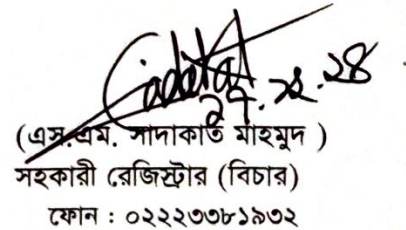 (এস.এম. সাদাকাত মাহমুদ )
সহকারী রেজিস্ট্রার (বিচার)
ফোন : ০২২২৩৩৮১৯৩২